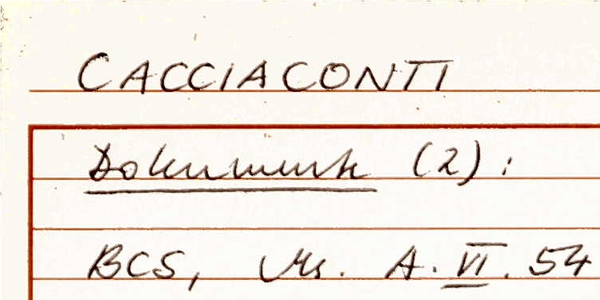 CACCIACONTI
Dokumente (2):
BCS, Ms. A. VI. 54